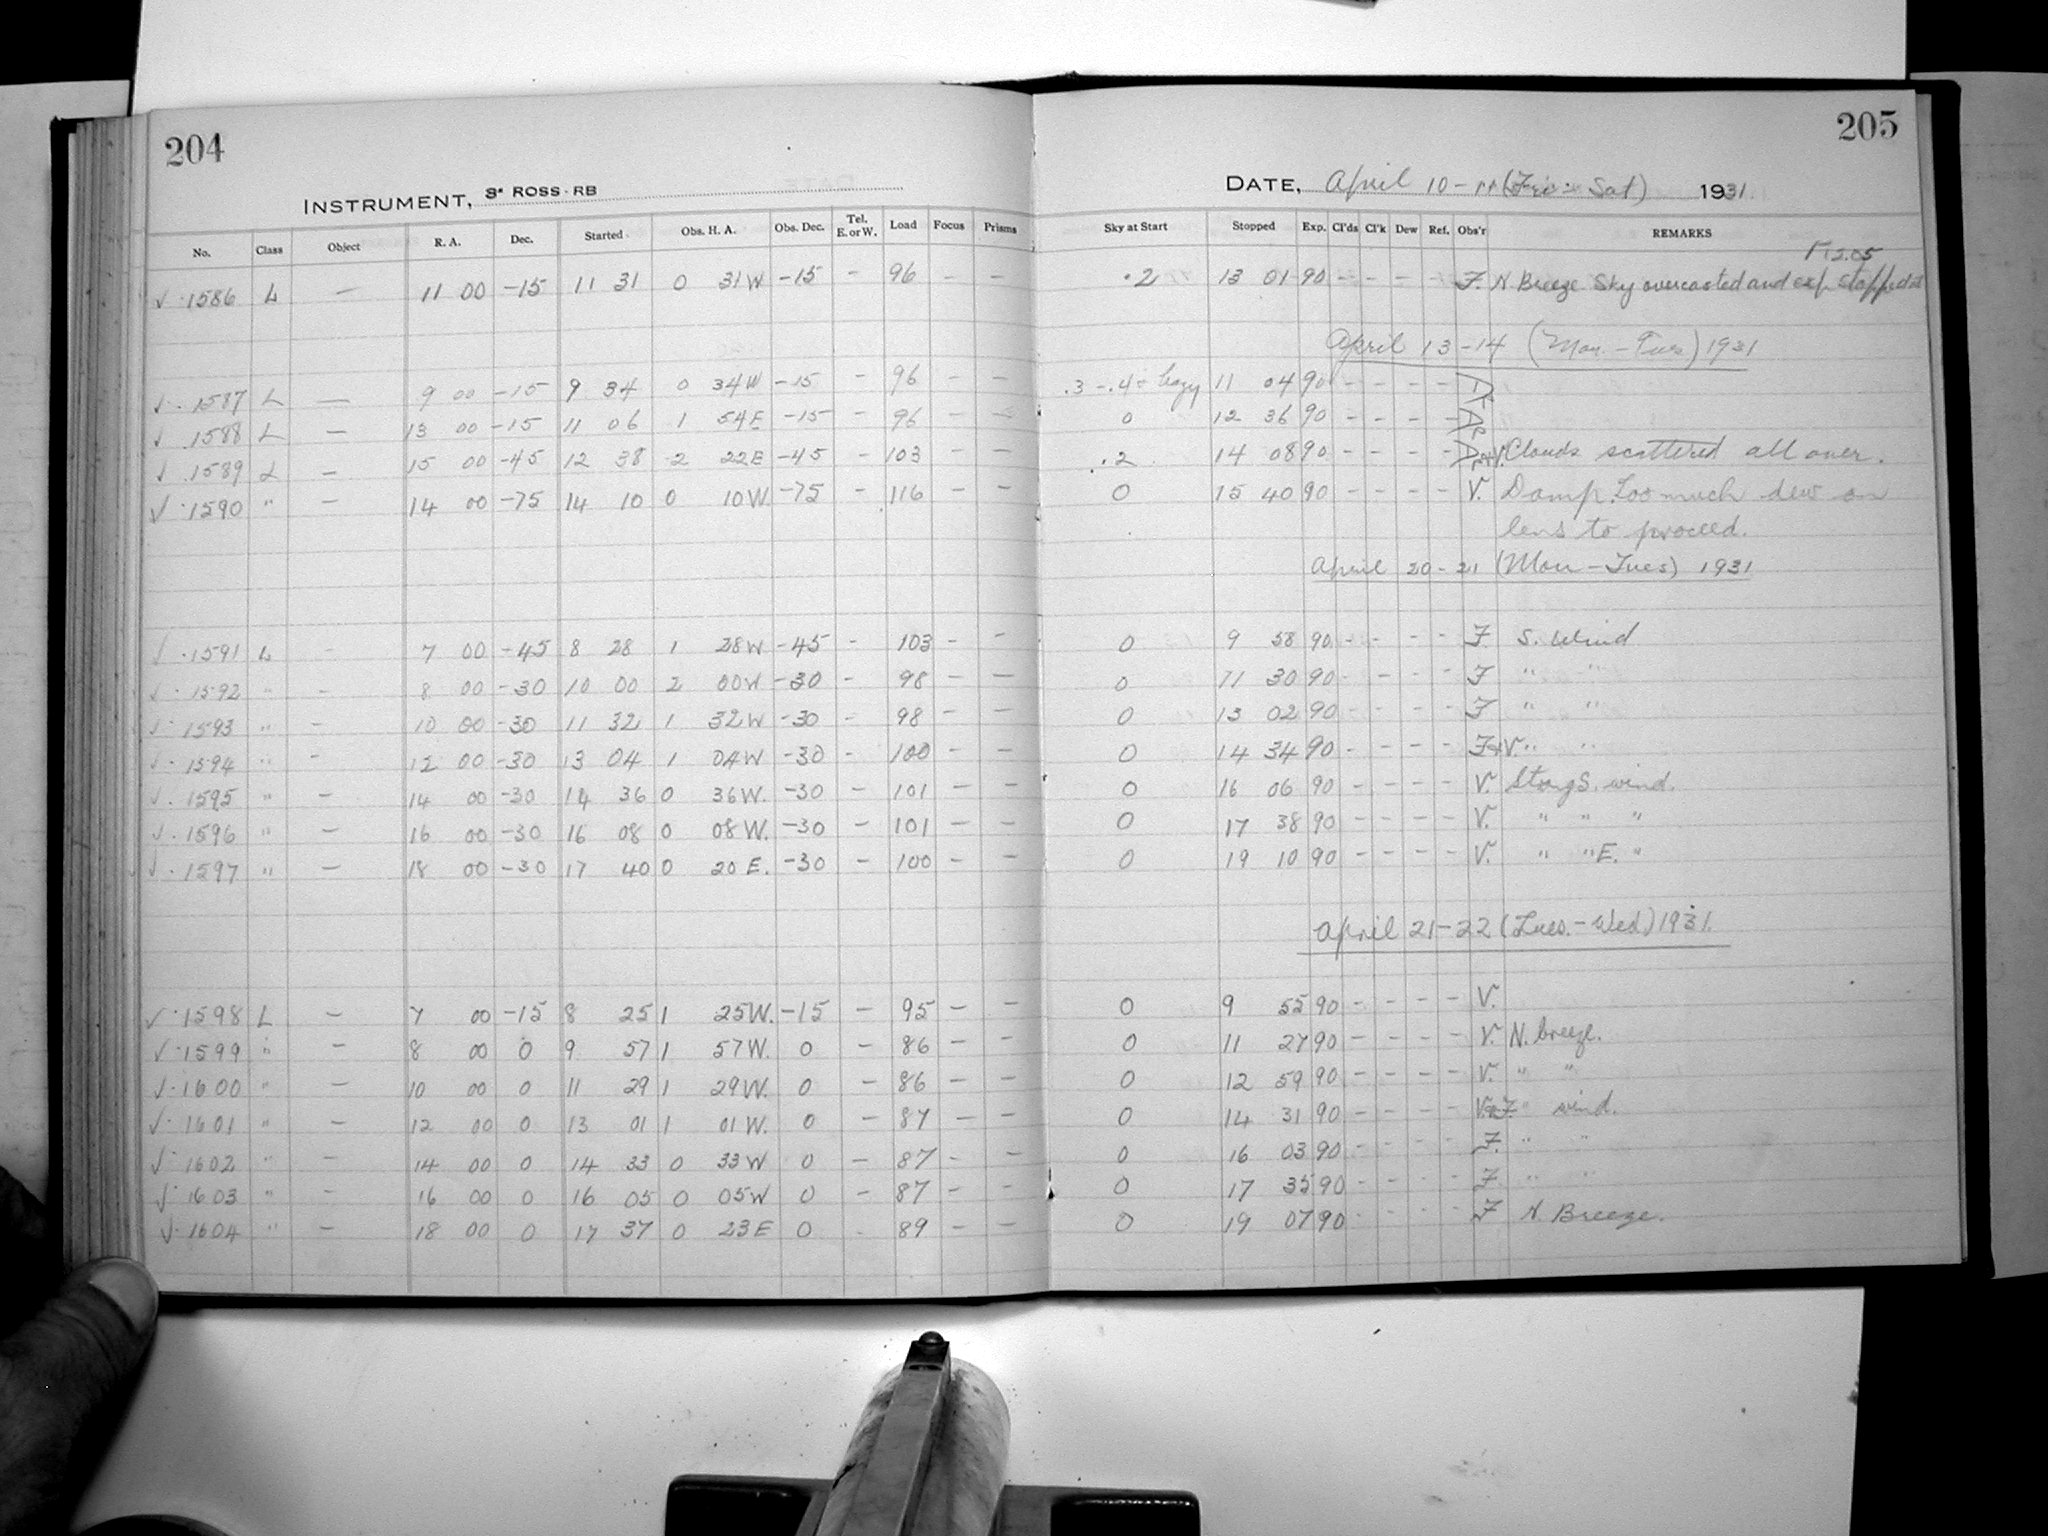 204
205
INSTRUMENT, 3" ROSS-RB
DATE, April 10-11 (Fri - Sat) 1931
No. Class Object R. A. Dec. Started Obs. H. A. Obs. Dec. Tel. E. or W. Load Focus Prisms Sky at Start Stopped Exp. Cl'ds Cl'k Dew Ref. Obs'r REMARKS
✓ 1586 L — 11 00 -15 11 31 0 31W -15 - 96 - - .2 13 01 90 - - - - F. N Breeze Sky overcasted and exp. stopped at
April 13-14 (Mon. - Tues) 1931
✓ 1587 L — 9 00 -15 9 34 0 34W -15 - 96 - - .3-.4 hazy 11 04 90 - - - -
✓ 1588 L — 13 00 -15 11 06 1 54E -15 - 96 - - 0 12 36 90 - - - -
✓ 1589 L — 15 00 -45 12 38 2 22E -45 - 103 - - .2 14 08 90 - - - - Clouds scattered all over.
✓ 1590 " — 14 00 -75 14 10 0 10W -75 - 116 - - 0 15 40 90 - - - - V. Damp. Too much dew on
lens to proceed.
April 20-21 (Mon - Tues) 1931
✓ 1591 L - 7 00 -45 8 28 1 28W -45 - 103 - - 0 9 58 90 - - - - F S. Wind
✓ 1592 " - 8 00 -30 10 00 2 00W -30 - 98 - - 0 11 30 90 - - - - F " "
✓ 1593 " - 10 00 -30 11 32 1 32W -30 - 98 - - 0 13 02 90 - - - - F " "
✓ 1594 " - 12 00 -30 13 04 1 04W -30 - 100 - - 0 14 34 90 - - - - F+V. " "
✓ 1595 " - 14 00 -30 14 36 0 36W. -30 - 101 - - 0 16 06 90 - - - - V. Strong S. wind.
✓ 1596 " - 16 00 -30 16 08 0 08W. -30 - 101 - - 0 17 38 90 - - - - V. " " "
✓ 1597 " - 18 00 -30 17 40 0 20E. -30 - 100 - - 0 19 10 90 - - - - V. " "E. "
April 21-22 (Tues. - Wed) 1931.
✓ 1598 L - 7 00 -15 8 25 1 25W. -15 - 95 - - 0 9 55 90 - - - - V.
✓ 1599 " - 8 00 0 9 57 1 57W. 0 - 86 - - 0 11 27 90 - - - - V. N. breeze.
✓ 1600 " - 10 00 0 11 29 1 29W. 0 - 86 - - 0 12 59 90 - - - - V. " "
✓ 1601 " - 12 00 0 13 01 1 01W. 0 - 87 - - 0 14 31 90 - - - - V+F " wind.
✓ 1602 " - 14 00 0 14 33 0 33W 0 - 87 - - 0 16 03 90 - - - - F. " "
✓ 1603 " - 16 00 0 16 05 0 05W 0 - 87 - - 0 17 35 90 - - - - F. " "
✓ 1604 " - 18 00 0 17 37 0 23E 0 - 89 - - 0 19 07 90 - - - - F N. Breeze.